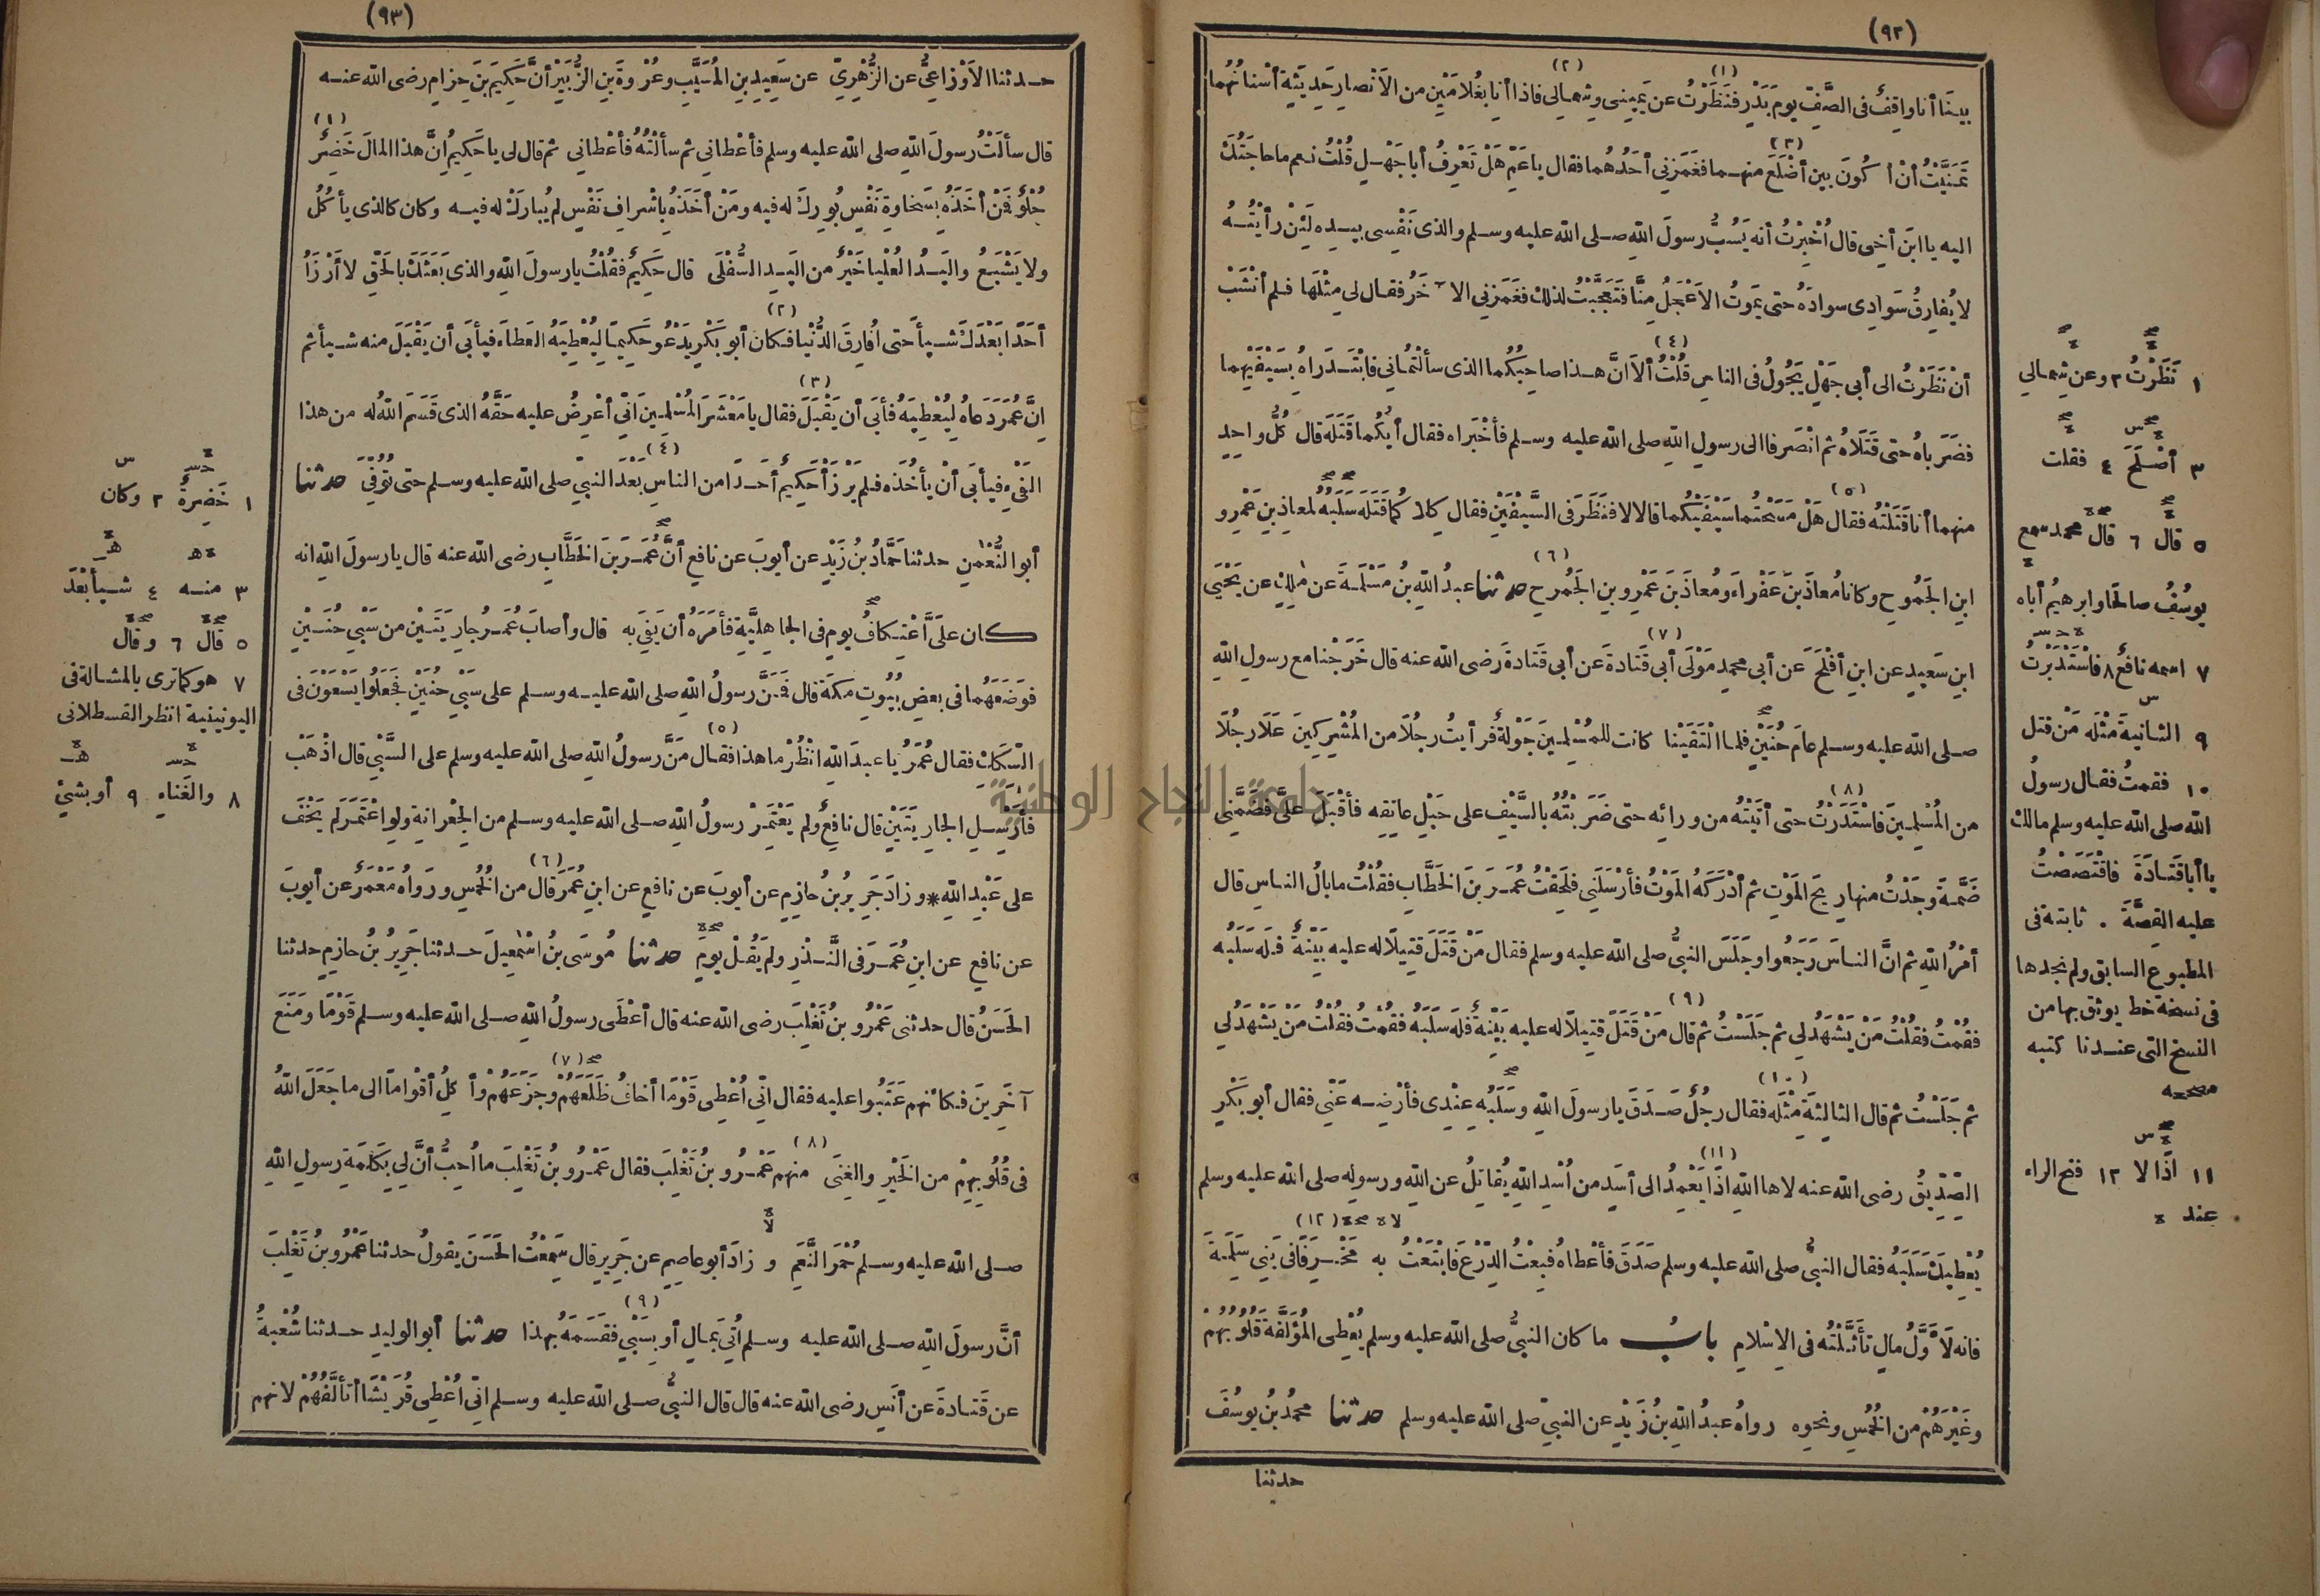 (٩٢)
بينَا أنا واقِفٌ فى الصَّفِّ يومَ بَدْرٍ فنَظَرْتُ عن يَمِينى وشِمالى فاذا أنا بغُلامَيْنِ من الاَنْصارِ حَدِيثَةٍ أسْنانُهُما
تَمَنَّيْتُ أنْ أكونَ بين أضْلَعَ منهما فغَمَزَنى أحَدُهُما فقال ياعَمِّ هَلْ تَعْرِفُ أباجَهْلٍ قُلْتُ نعم ماحاجَتُكَ
اليه يا ابنَ أخِى قال أُخْبِرْتُ أنه يَسُبُّ رسولَ اللهِ صلى الله عليه وسلم والذى نَفْسِى بيدِه لَئِنْ رأيْتُهُ
لا يُفارِقُ سَوادِى سوادَهُ حتى يَمُوتُ الاَعْجَلُ مِنَّا فتَعَجَّبْتُ لذلك فغَمَزَنى الآخَرُ فقال لى مِثْلَها فلم أنْشَبْ
أنْ نَظَرْتُ الى أبى جَهْلٍ يَجُولُ فى الناسِ قُلْتُ ألاَ انَّ هذا صاحِبُكُما الذى سألْتُمانى فابْتَدَراهُ بسَيْفَيْهِما
فضَرَباهُ حتى قَتَلاهُ ثم انْصَرفا الى رسولِ اللهِ صلى الله عليه وسلم فأخْبَراه فقال أيُّكُما قَتَلَهُ قال كُلُّ واحِدٍ
منهما أنا قَتَلْتُه فقال هَلْ مَسَحْتُما سَيْفَيْكُما قالا لا فنَظَرَ فى السَّيْفَيْنِ فقال كلا كُما قَتَلَه سَلَبُهُ لمعاذِ بنِ عَمْرِو
ابنِ الجَمُوحِ وكانا مُعاذَ بنَ عَفْراءَ ومُعاذَ بنَ عَمْرِو بنِ الجَمُوحِ حدثنا عبدُ اللهِ بنُ مَسْلَمَةَ عن مٰلِكٍ عن يَحْيَى
ابنِ سَعِيدٍ عن ابنِ أفْلَحَ عن أبى محمدٍ مَوْلَى أبى قَتادةَ عن أبى قَتادةَ رضى الله عنه قال خَرَجْنا مع رسولِ اللهِ
صلى الله عليه وسلم عامَ حُنَيْنٍ فلما الْتَقَيْنا كانت للمُسْلِمينَ جَوْلةٌ فرأيتُ رجُلاً من المُشْرِكِينَ عَلاَ رجُلاً
من المُسْلِمِينَ فاسْتَدَرْتُ حتى أتَيْتُه من ورائه حتى ضَرَبْتُهُ بالسَّيْفِ على حَبْلِ عاتِقِه فأقْبَلَ علىَّ فضَمَّنِى
ضَمَّةً وجَدْتُ منها ريحَ المَوْتِ ثم أدْرَكَهُ المَوْتُ فأرْسَلَنِى فلَحِقْتُ عُمَرَ بنَ الخَطَّابِ فقُلْتُ ما بالُ الناسِ قال
أمْرُ اللهِ ثم انَّ الناسَ رَجَعُوا وجَلَسَ النبىُّ صلى الله عليه وسلم فقال مَنْ قَتَلَ قَتِيلاً له عليه بَيِّنةٌ فلَه سَلَبُه
فقُمْتُ فقُلْتُ مَنْ يَشْهَدُلى ثم جَلَسْتُ ثم قال مَنْ قَتَلَ قَتِيلاً له عليه بَيِّنةٌ فلَهُ سَلَبُهُ فقُمْتُ فقُلْتُ مَنْ يَشْهَدُلى
ثم جَلَسْتُ ثم قال الثالِثةَ مِثْلَه فقال رجُلٌ صَدَقَ يا رسولَ اللهِ وسَلَبُه عِنْدِى فأرْضِه عَنِّى فقال أبو بَكْرٍ
الصِّدِّيقُ رضى الله عنه لاها اللهِ اذًا يَعْمِدُ الى أسَدٍ من أُسْدِ اللهِ يُقاتِلُ عن اللهِ ورسولِه صلى الله عليه وسلم
يُعْطِيكَ سَلَبَهُ فقال النبىُّ صلى الله عليه وسلم صَدَقَ فأعْطاهُ فبِعْتُ الدِّرْعَ فابْتَعْتُ به مَخْرَفًا فى بَنِى سَلِمَةَ
فانه لَأوَّلُ مالٍ تأثَّلْتُه فى الاِسْلامِ بابُ ما كان النبىُّ صلى الله عليه وسلم يُعْطِى المُؤَلَّفةَ قُلُوبُهُمْ
وغَيْرَهُمْ من الخُمُسِ ونحوِه رواهُ عبدُ اللهِ بنُ زَيْدٍ عن النبىِّ صلى الله عليه وسلم حدثنا محمدُ بنُ يوسُفَ
حدثنا
١ نَظَرْتُ ٢ وعن شِمالى
٣ أصْلَحَ ٤ فقلت
٥ قال ٦ قال محمد سمع
يوسُفُ صالحًا وابرهيمُ أباه
٧ اسمه نافعٌ ٨ فاسْتَدْبَرْتُ
٩ الثانيةَ مثْلَه مَنْ قتل
١٠ فقمتُ فقال رسولُ
الله صلى الله عليه وسلم مالك
يا أباقَتادَةَ فاقْتَصَصْتُ
عليه القِصَّةَ . ثابتة فى
المطبوع السابق ولم نجدها
فى نسخة خط يوثق بها من
النسخ التى عندنا كتبه
مصححه
١١ اذًا لا ١٢ فتح الراء
عند
(٩٣)
حدثنا الاَوْزاعِىُّ عن الزُّهْرِىِّ عن سَعِيدِ بنِ المُسَيَّبِ وعُرْوةَ بنِ الزُّبَيْرِ أنَّ حَكِيمَ بنَ حِزامٍ رضى الله عنه
قال سألْتُ رسولَ اللهِ صلى الله عليه وسلم فأعْطانى ثم سألْتُهُ فأعْطانى ثم قال لى يا حَكِيمُ اِنَّ هذا المالَ خَضِرٌ
حُلْوٌ فمَنْ أخَذَهُ بسَخاوةِ نَفْسٍ بُورِكَ له فيه ومَنْ أخَذَهُ باِشْرافِ نَفْسٍ لم يُبارَكْ له فيه وكان كالذى يأكُلُ
ولا يَشْبَعُ واليَدُ العُلْيا خَيْرٌ من اليَدِ السُّفْلَى قال حَكِيمٌ فقُلْتُ يا رسولَ اللهِ والذى بَعَثَكَ بالحَقِّ لا أرْزَأُ
أحَدًا بَعْدَكَ شيأً حَتى أُفارِقَ الدُّنْيا فكان أبو بَكْرٍ يَدْعُو حَكِيمًا لِيُعْطِيَهُ العَطاءَ فيأبَى أن يَقْبَلَ منه شيأ ثم
اِنَّ عُمَرَ دَعاهُ لِيُعْطِيَهُ فأبَى أن يَقْبَلَ فقال يا مَعْشَرَ المُسْلِمينَ انِّى أعْرِضُ عليه حَقَّهُ الذى قَسَمَ اللهُ له من هذا
الفَىْءِ فيأبَى أنْ يأخُذَه فلم يَرْزَأْ حَكِيمٌ أحَدًا من الناسِ بَعْدَ النبىِّ صلى الله عليه وسلم حتى تُوُفِّىَ حدثنا
أبو النُّعْمٰنِ حدثنا حَمَّادُ بنُ زَيْدٍ عن أيوبَ عن نافعٍ أنَّ عُمَرَ بنَ الخَطَّابِ رضى الله عنه قال يا رسولَ اللهِ انه
كان عَلىَّ اعْتِكافُ يومٍ فى الجاهِلِيَّةِ فأمَرَهُ أن يَفِىَ به قال وأصابَ عُمَرُ جارِيَتَيْنِ من سَبْىِ حُنَيْنٍ
فوَضَعَهُما فى بعضِ بُيُوتِ مكةَ قال فَمَنَّ رسولُ اللهِ صلى الله عليه وسلم على سَبْىِ حُنَيْنٍ فجَعَلُوا يَسْعَوْنَ فى
السِّكَكِ فقال عُمَرُ يا عبدَ اللهِ انْظُرْ ما هذا فقال مَنَّ رسولُ اللهِ صلى الله عليه وسلم على السَّبْىِ قال اذْهَبْ
فأرْسِلِ الجارِيَتَيْنِ قال نافعٌ ولم يَعْتَمِرْ رسولُ اللهِ صلى الله عليه وسلم من الجِعْرانةِ ولوِ اعْتَمَرَ لم يَخْفَ
على عَبْدِ اللهِ * وزادَ جَرِيرُ بنُ حازِمٍ عن أيوبَ عن نافعٍ عن ابنِ عُمَرَ قال من الخُمُسِ ورَواهُ مَعْمَرٌ عن أيوبَ
عن نافعٍ عن ابنِ عُمَرَ فى النَّذْرِ ولم يَقُلْ يومَ حدثنا مُوسَى بنُ اسْمٰعِيلَ حدثنا جَرِيرُ بنُ حازِمٍ حدثنا
الحَسَنُ قال حدثنى عَمْرُو بنُ تَغْلِبَ رضى الله عنه قال أعْطَى رسولُ اللهِ صلى الله عليه وسلم قَوْمًا ومَنَعَ
آخَرِينَ فكأنهم عَتَبُوا عليه فقال انِّى أُعْطِى قَوْمًا أخافُ ظَلَعَهُمْ وجَزَعَهُمْ وأَكِلُ أقْوامًا الى ما جَعَلَ اللهُ
فى قُلُوبِهِمْ من الخَيْرِ والغِنَى منهم عَمْرُو بنُ تَغْلِبَ فقال عَمْرُو بنُ تَغْلِبَ ما أُحِبُّ أنَّ لى بِكَلِمَةِ رسولِ اللهِ
صلى الله عليه وسلم حُمْرَ النَّعَمِ و زادَ أبو عاصِمٍ عن جَرِيرٍ قال سَمِعْتُ الحَسَنَ يقولُ حدثنا عَمْرُو بنُ تَغْلِبَ
أنَّ رسولَ اللهِ صلى الله عليه وسلم أُتِىَ بمَالٍ أو بِسَبْىٍ فقَسَمَهُ بهذا حدثنا أبو الوليدِ حدثنا شُعْبةُ
عن قَتادةَ عن أنَسٍ رضى الله عنه قال قال النبىُّ صلى الله عليه وسلم انِّى أُعْطِى قُرَيْشًا أتألَّفُهُمْ لانهم
١ خَضِرةٌ ٢ وكان
٣ منه ٤ شيأ بَعْدَ
٥ قال ٦ وقال
٧ هو كما ترى بالمشالة فى
اليونينية انظر القسطلانى
٨ والغَناءِ ٩ أو بشىْءٍ
جامعة النجاح الوطنية